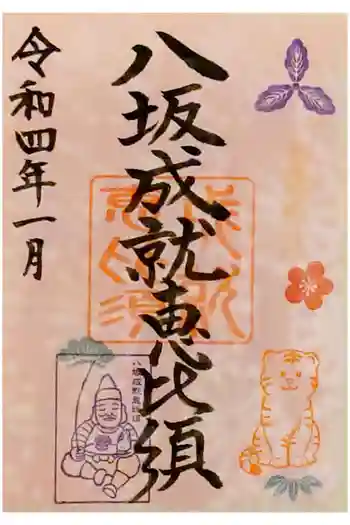 八坂成就恵比須
令和四年一月
八坂成就恵比須